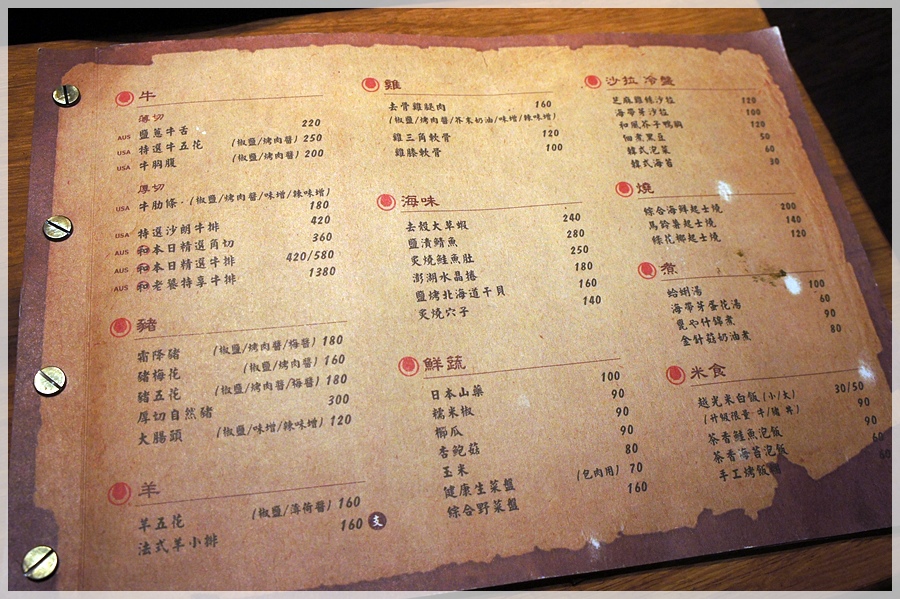 牛
薄切
AUS 鹽蔥牛舌 220
USA 特選牛五花 (椒鹽/烤肉醬) 250
USA 牛胸腹 (椒鹽/烤肉醬) 200
厚切
USA 牛肋條·(椒鹽/烤肉醬/味增/辣味增)
180
USA 特選沙朗牛排 420
AUS 和本日精選角切 360
AUS 和本日精選牛排 420/580
AUS 和老饕特享牛排 1380
豬
霜降豬 (椒鹽/烤肉醬/梅醬) 180
豬梅花 (椒鹽/烤肉醬) 160
豬五花 (椒鹽/烤肉醬/梅醬) 180
厚切自然豬 300
大腸頭 (椒鹽/味增/辣味增) 120
羊
羊五花 (椒鹽/薄荷醬) 160
法式羊小排 160 支
雞
去骨雞腿肉 160
(椒鹽/烤肉醬/芥末奶油/味增/辣味增)
雞三角軟骨 120
雞膝軟骨 100
海味
去殼大草蝦 240
鹽漬鯖魚 280
炙燒鮭魚肚 250
澎湖水晶捲 180
鹽烤北海道干貝 160
炙燒穴子 140
鮮蔬
日本山藥 100
糯米椒 90
櫛瓜 90
杏鮑菇 90
玉米 80
健康生菜盤 (包肉用) 70
綜合野菜盤 160
沙拉 冷盤
芝麻雞絲沙拉 120
海帶芽沙拉 100
和風芥子鴨胸 120
佃煮黑豆 50
韓式泡菜 60
韓式海苔 30
燒
綜合海鮮起士燒 200
馬鈴薯起士燒 140
綠花椰起士燒 120
煮
蛤蜊湯 100
海帶芽蛋花湯 60
甕や什錦煮 90
金針菇奶油煮 80
米食
越光米白飯(小/大) 30/50
(升級限量 牛/豬 丼) 90
茶香鮭魚泡飯 90
茶香海苔泡飯 60
手工烤飯糰 60